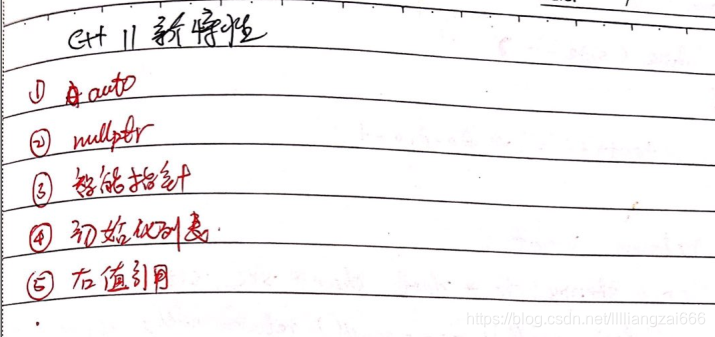 C++ 11 新特性
① auto
② nullptr
③ 智能指针
④ 初始化列表.
⑤ 右值引用
https://blog.csdn.net/llllliangzai666